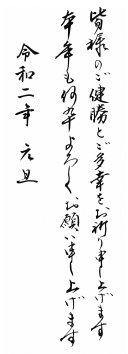 皆様のご健勝とご多幸をお祈り申し上げます
本年も何卒よろしくお願い申し上げます
令和二年 元旦